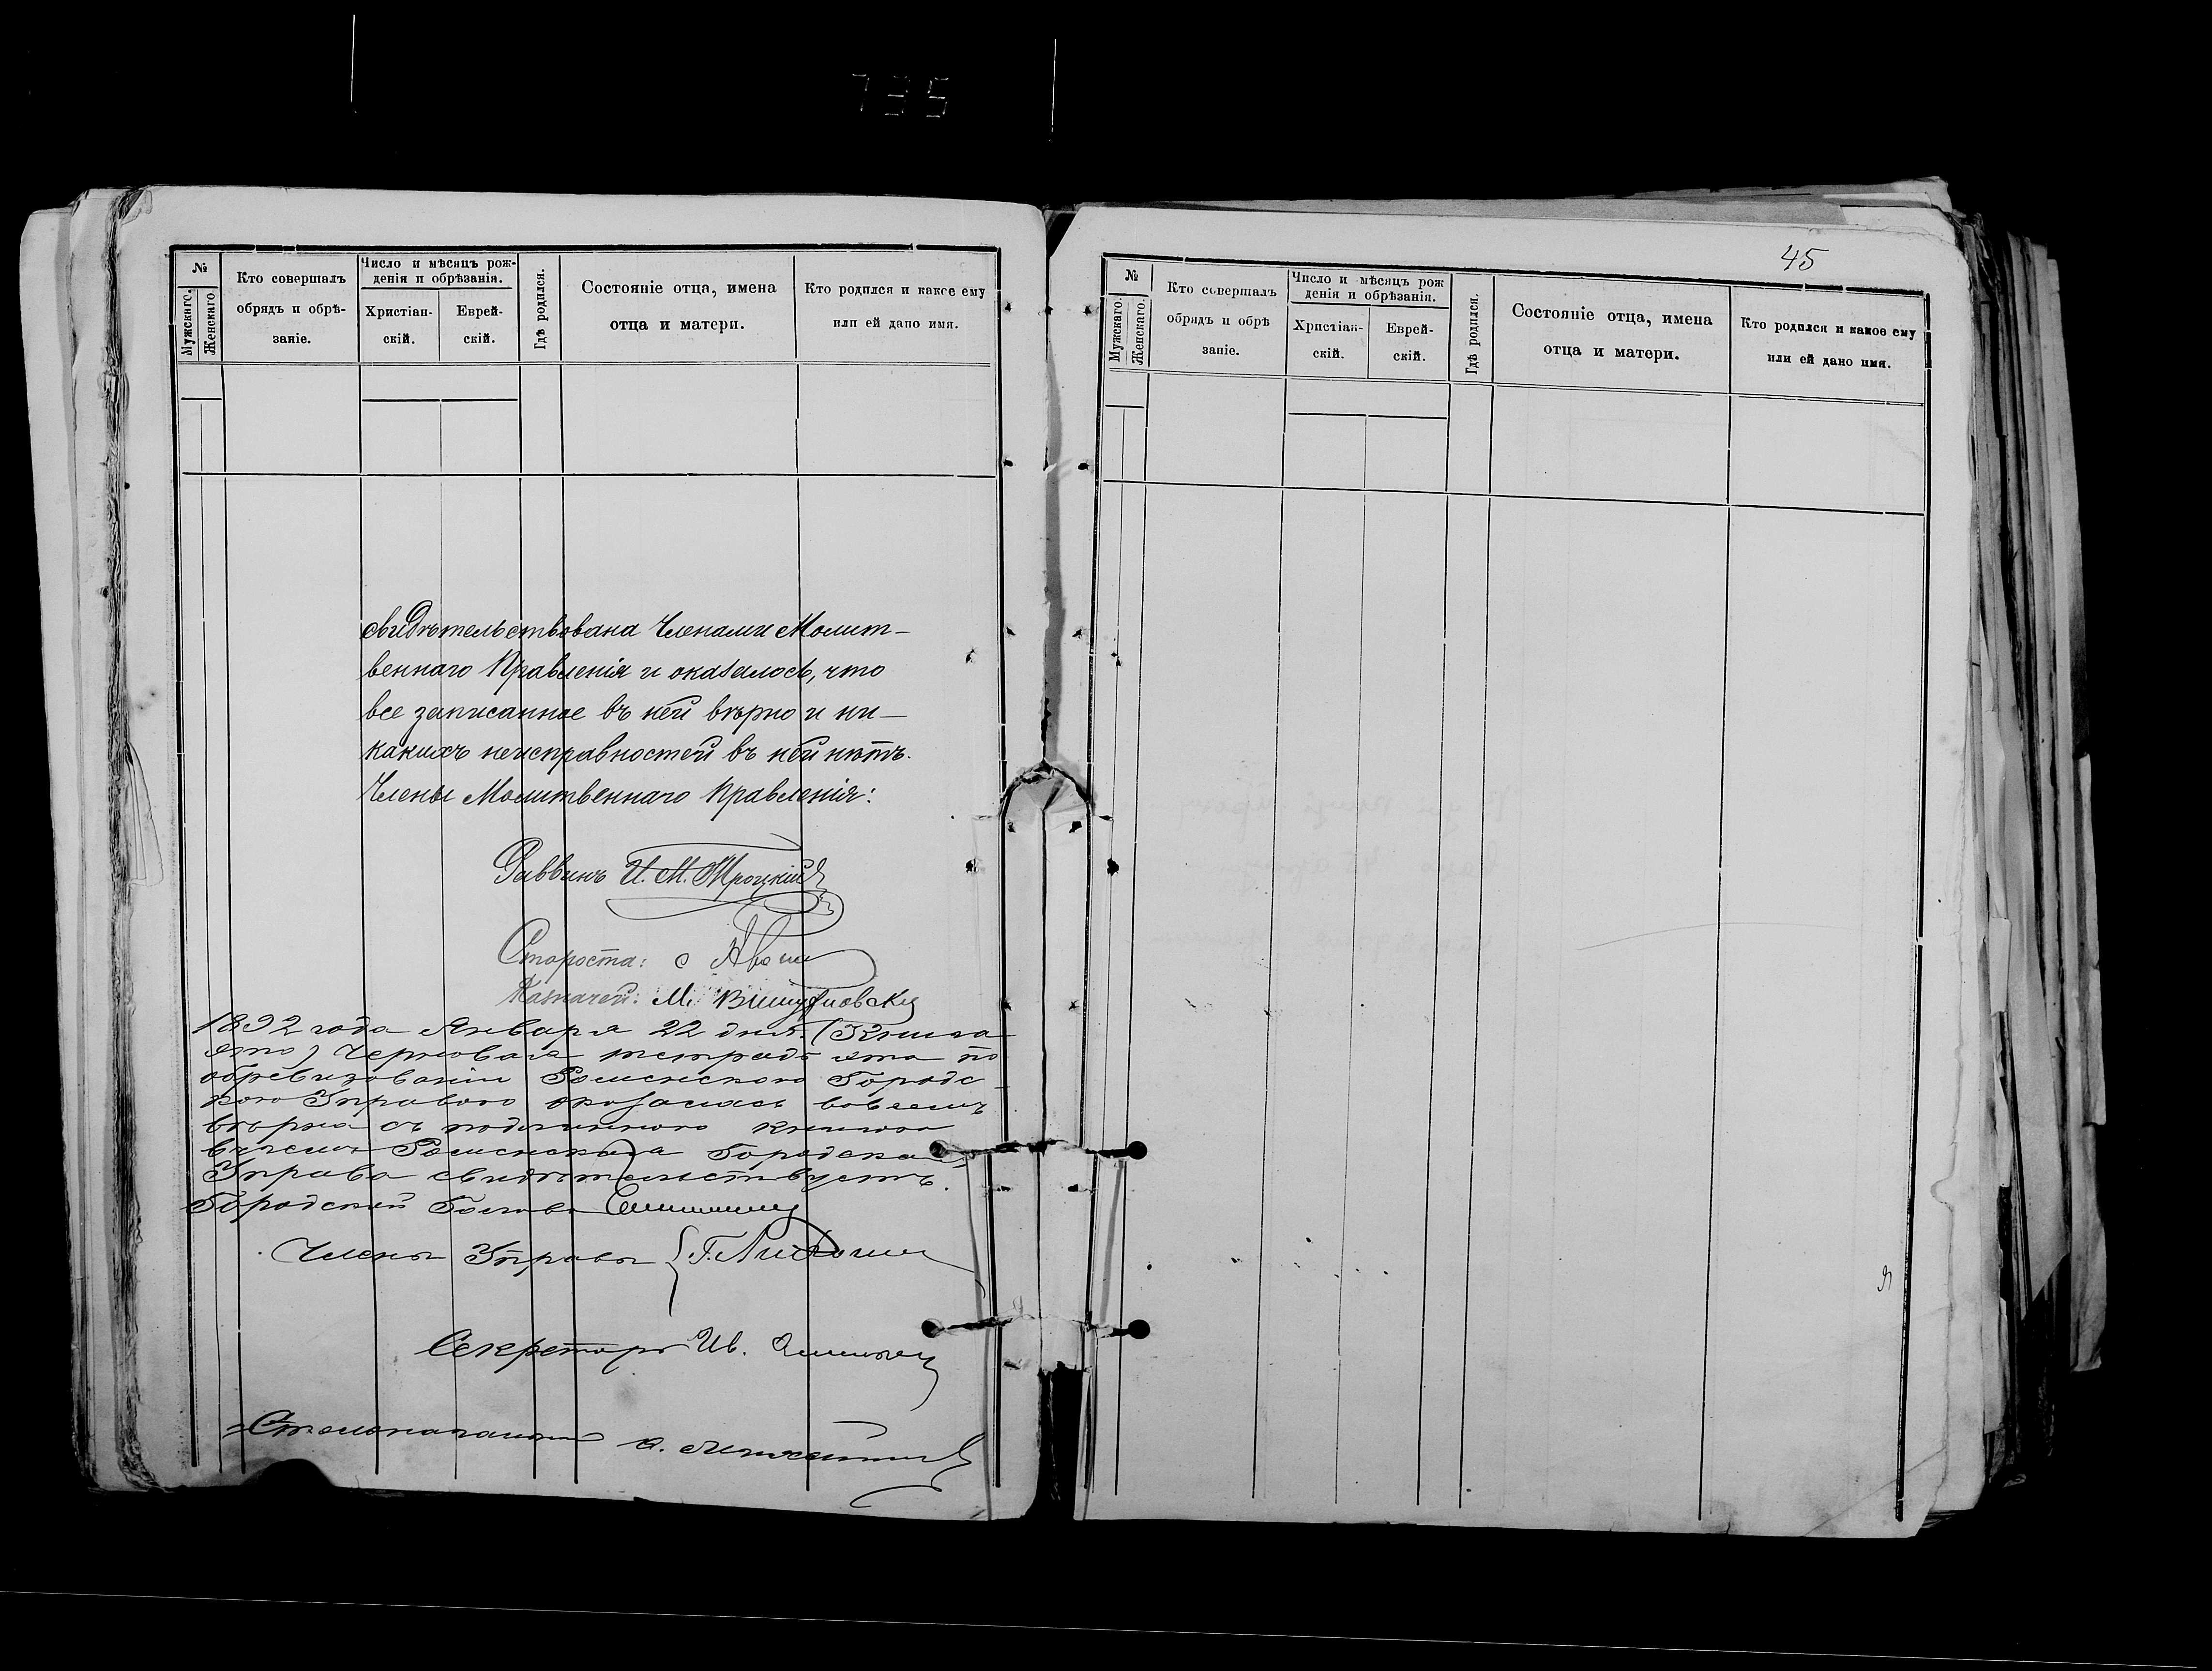 735
№
Мужскаго.
Женскаго.
Кто совершалъ
обрядъ и обрѣ-
заніе.
Число и мѣсяцъ рож-
денія и обрѣзанія.
Христіан-
скій.
Еврей-
скій.
Гдѣ родился.
Состояніе отца, имена
отца и матери.
Кто родился и какое ему
или ей дано имя.
свидѣтельствована Членами Молит-
веннаго Правленія и оказалось, что
все записанное въ ней вѣрно и ни-
какихъ неисправностей въ ней нѣтъ.
Члены Молитвеннаго Правленія:
Раввинъ И. М. Троцкій
Староста:
Казначей: М.
1892 года Января 22 дня. (Книга
эта) Черновая тетрадь эта по
обревизованіи Роменскою Городс-
кою Управою оказалась вовсемъ
вѣрна съ подлинною книгою
въ чемъ Роменская Городская
Управа свидѣтельствуетъ.
Городской Голова
Члены Управы
Секретарь Ив.
Столоначальникъ
45
№
Мужскаго.
Женскаго.
Кто совершалъ
обрядъ и обрѣ
заніе.
Число и мѣсяцъ рож
денія и обрѣзанія.
Христіан-
скій.
Еврей-
скій.
Гдѣ родился.
Состояніе отца, имена
отца и матери.
Кто родился и какое ему
или ей дано имя.